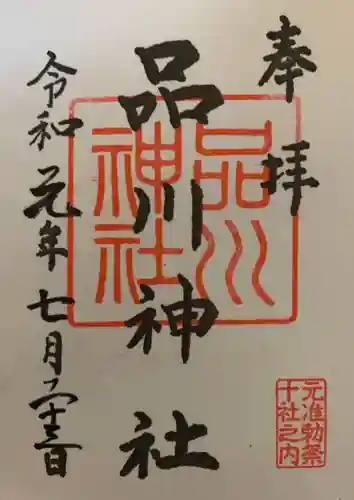 奉拝
品川神社
品川
神社
令和元年七月二十三日
元准勅祭
十社之内